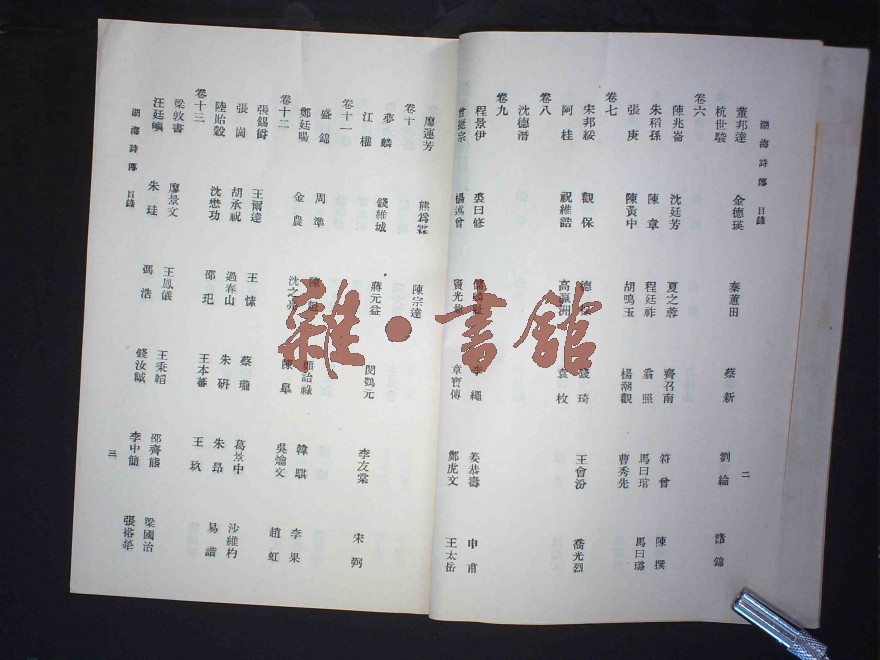 湖海詩傳 目錄
二
董邦達 金德瑛 秦蕙田 蔡新 劉綸 諸錦
杭世駿
卷六
陳兆崙 沈廷芳 夏之蓉 齊召南 符曾 陳撰
朱稻孫 陳章 程廷祚 翁照 馬曰琯 馬曰璐
張庚 陳黃中 胡鳴玉 楊潮觀 曹秀先
卷七
宋邦綏 觀保 德 裘琦
阿桂 祝維誥 高瀛洲 袁枚 王會汾 喬光烈
卷八
沈德潛
卷九
程景伊 裘曰修 李繩 姜恭壽 申甫
曾廷宗 楊述曾 竇光鼐 章寶傳 鄭虎文 王太岳
廖運芳 熊爲霖 陳宗達
卷十
夢麟 錢維城 蔣元益 閔鶚元 李友棠 宋弼
江權
卷十一
盛錦 周準 陳 顧詒祿 韓騏 李果
鄭廷暘 金農 沈之 陳皐 吳爚文 趙虹
卷十二
張錫爵 王爾達 王愫 蔡瓏 葛景中 沙維杓
張崗 胡承祝 過春山 朱研 朱昂 易諧
陸貽穀 沈懋功 邵玘 王本蕃 王玖
卷十三
梁敦書 廖景文 王鳳儀 王秉韜 邵齊熊 梁國治
汪廷璵 朱珪 馮浩 錢汝誠 李中簡 張裕犖
湖海詩傳 目錄
三
雜·書館